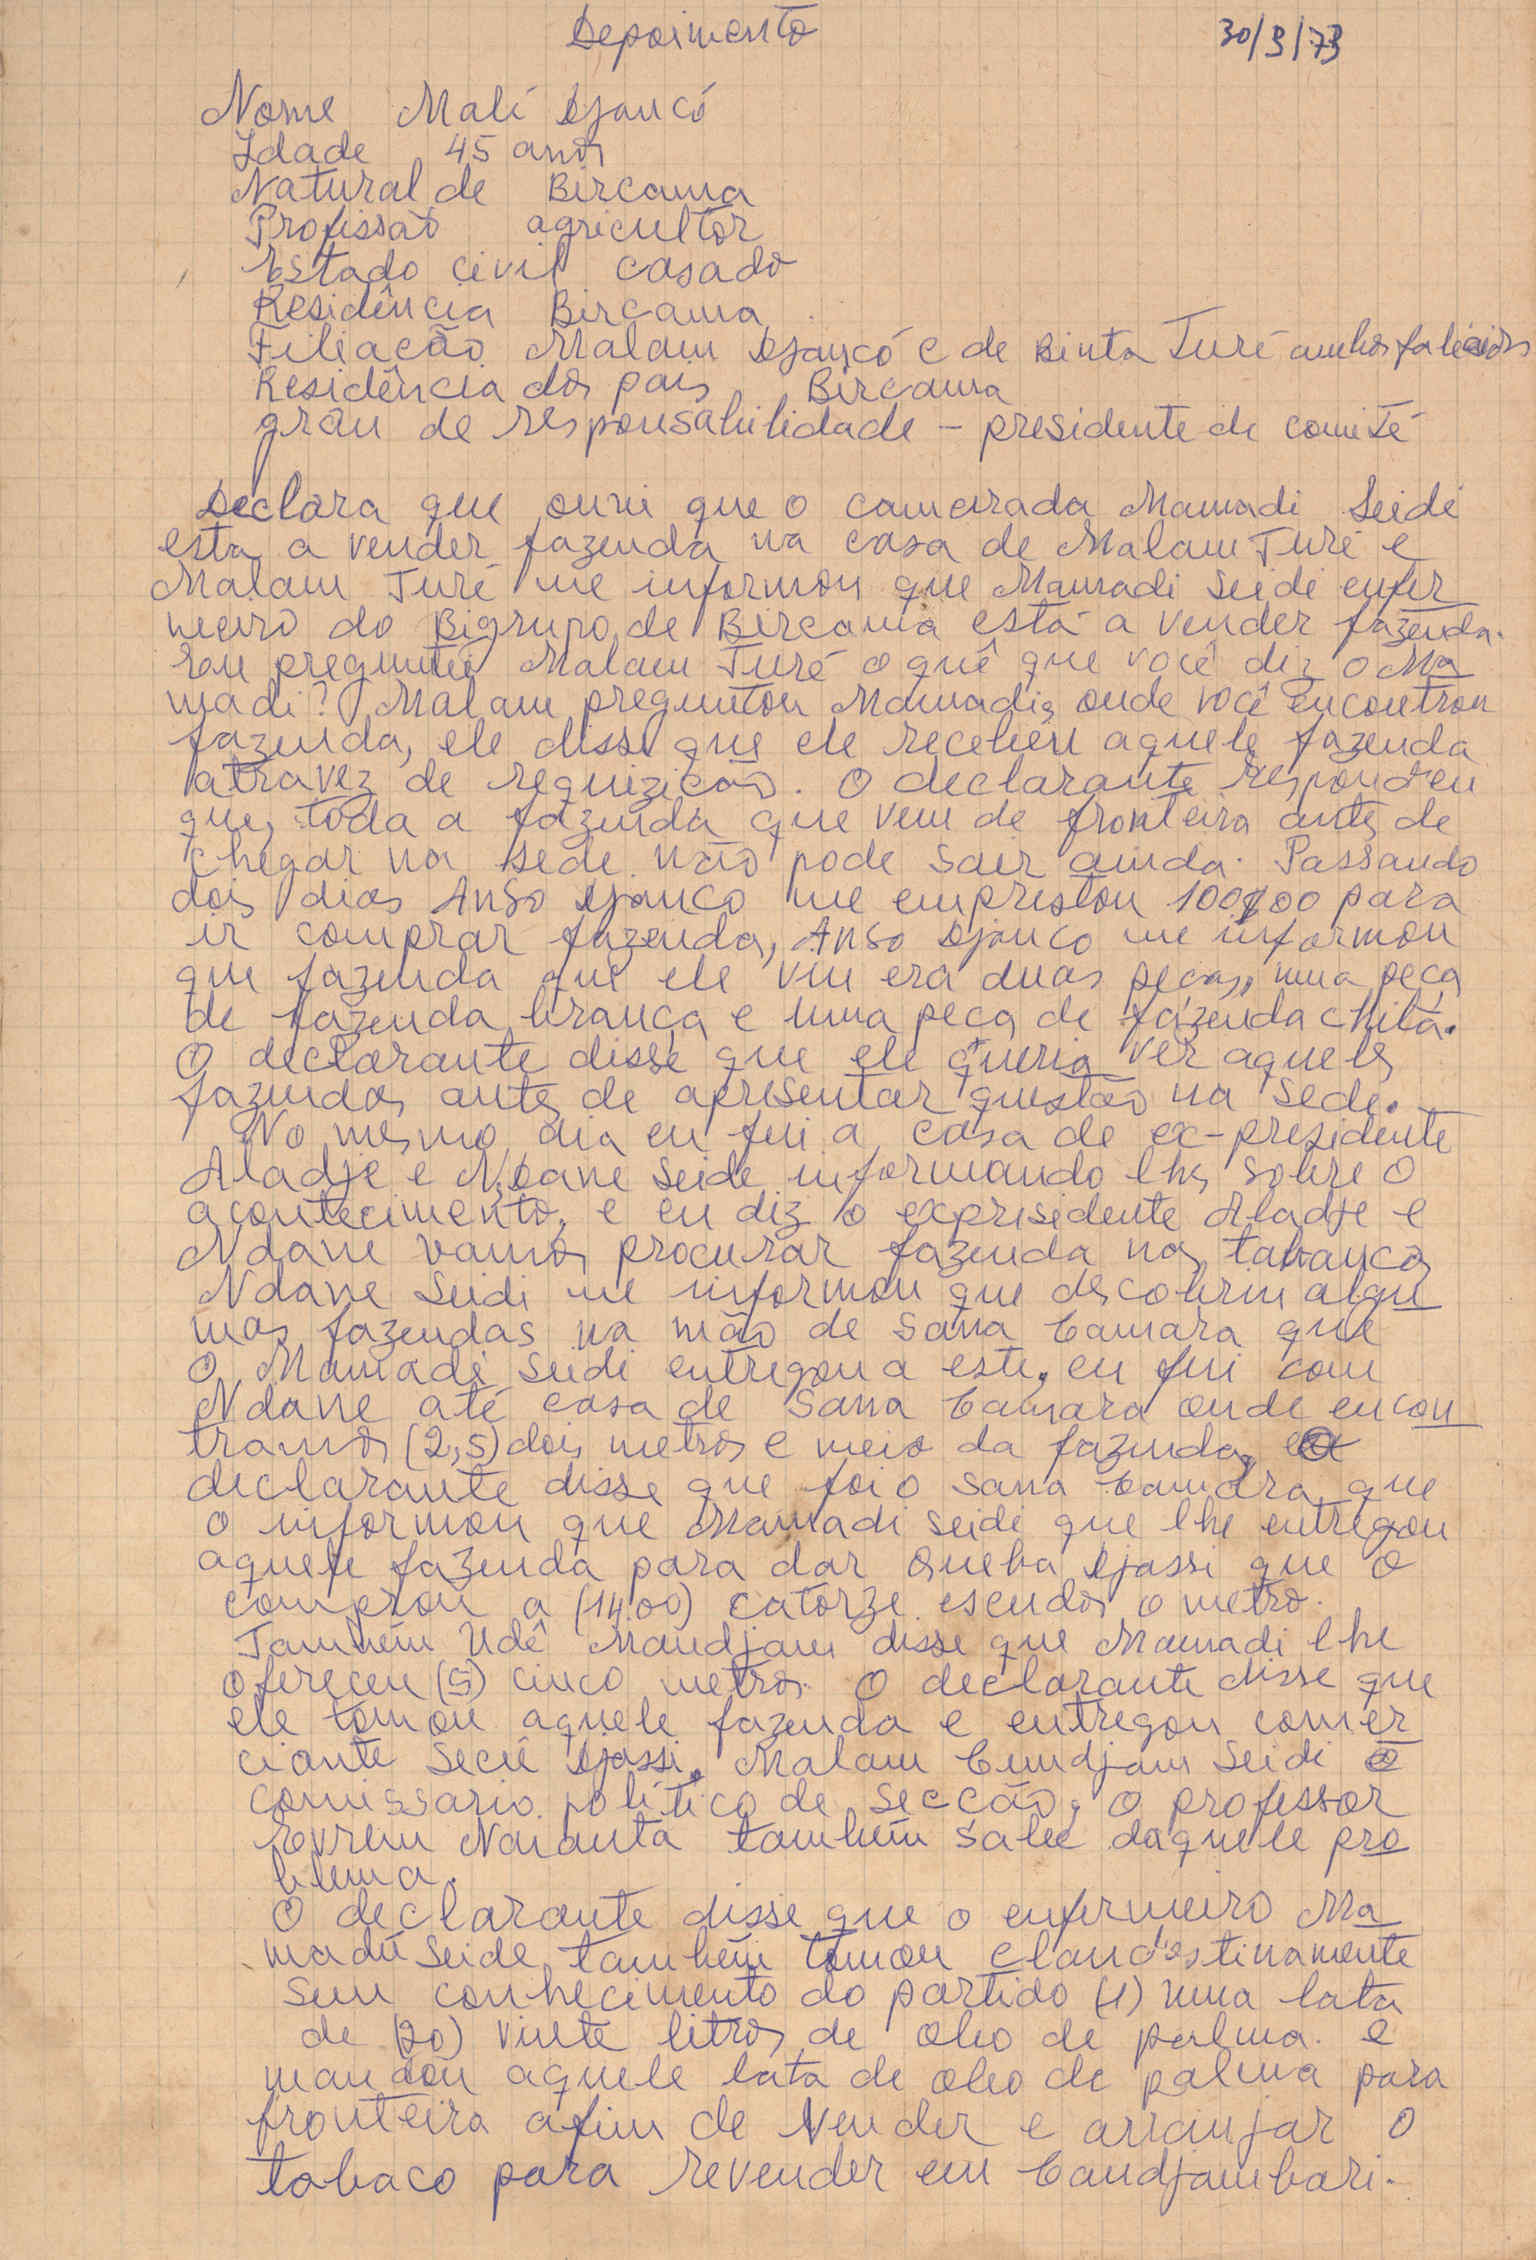 Depoimento 30/3/73
Nome Malí Djancó
Idade 45 anos
Natural de Bircama
Profissaõ agricultor
Estado civil casado
Residência Bircama
Filiacão Malam Djancó e de Binta Turé ambos falécidos
Residência dos pais Bircama
grau de responsabilidade - presidente de comité
Declara que ouvi que o camarada Mamadi Seidé
esta a vender fazenda na casa de Malam Turé e
Malam Turé me informou que Mamadi Seidi enfer
meiro do Bigrupo de Bircama está a vender fazenda.
Eu preguntei Malam Turé o quê que você diz o Ma
madi? Malam preguntou Mamadi, onde você encontrou
fazenda, ele disse que ele recebeu aquele fazenda
atravez de requizicão. O declarante respondeu
que, toda a fazenda que vem de fronteira antes de
chegar na sede não pode sair ainda. Passando
dois dias Anso Djanco me emprestou 100$00 para
ir comprar fazenda, Anso Djanco me informou
que fazenda que ele viu era duas pecas, uma peca
de fazenda branca e uma peca de fazenda chita.
O declarante disse que ele queria ver aqueles
fazendas antes de apresentar questão na sede.
No mesmo dia eu fui a casa de ex-presidente
Aladje e Ndane Seide informando lhes sobre o
acontecimento, e eu diz o expresidente Aladje e
Ndane vamos procurar fazenda nas tabancas
Ndane Seidi me informou que descobriu algu
mas fazendas na mão de Sana Camara que
O Mamadi Seidi entregou a este, eu fui com
Ndane até casa de Sana Camara onde encon
tramos (2,5) dois metros e meio da fazenda,
declarante disse que foi o Sana Camara que
o informou que Mamadi Seidi que lhe entregou
aquele fazenda para dar Queba Djassi que o
comprou a (14.00) catorze escudos o metro.
Também Udê Mandjam disse que Mamadi lhe
ofereceu (5) cinco metros. O declarante disse que
ele tomou aquele fazenda e entregou comer
ciante Secu Djassi, Malam Cundjam Seidi o
comissario político de seccão, o professor
Evrem Naianta também sabe daquele pro
blema.
O declarante disse que o enfermeiro Ma
madu Seide também tomou clandestinamente
sem conhecimento do partido (1) uma lata
de (20) vinte litros de oleo de palma. e
mandou aquele lata de oleo de palma para
fronteira afim de vender e arranjar o
tabaco para revender em Candjambari.